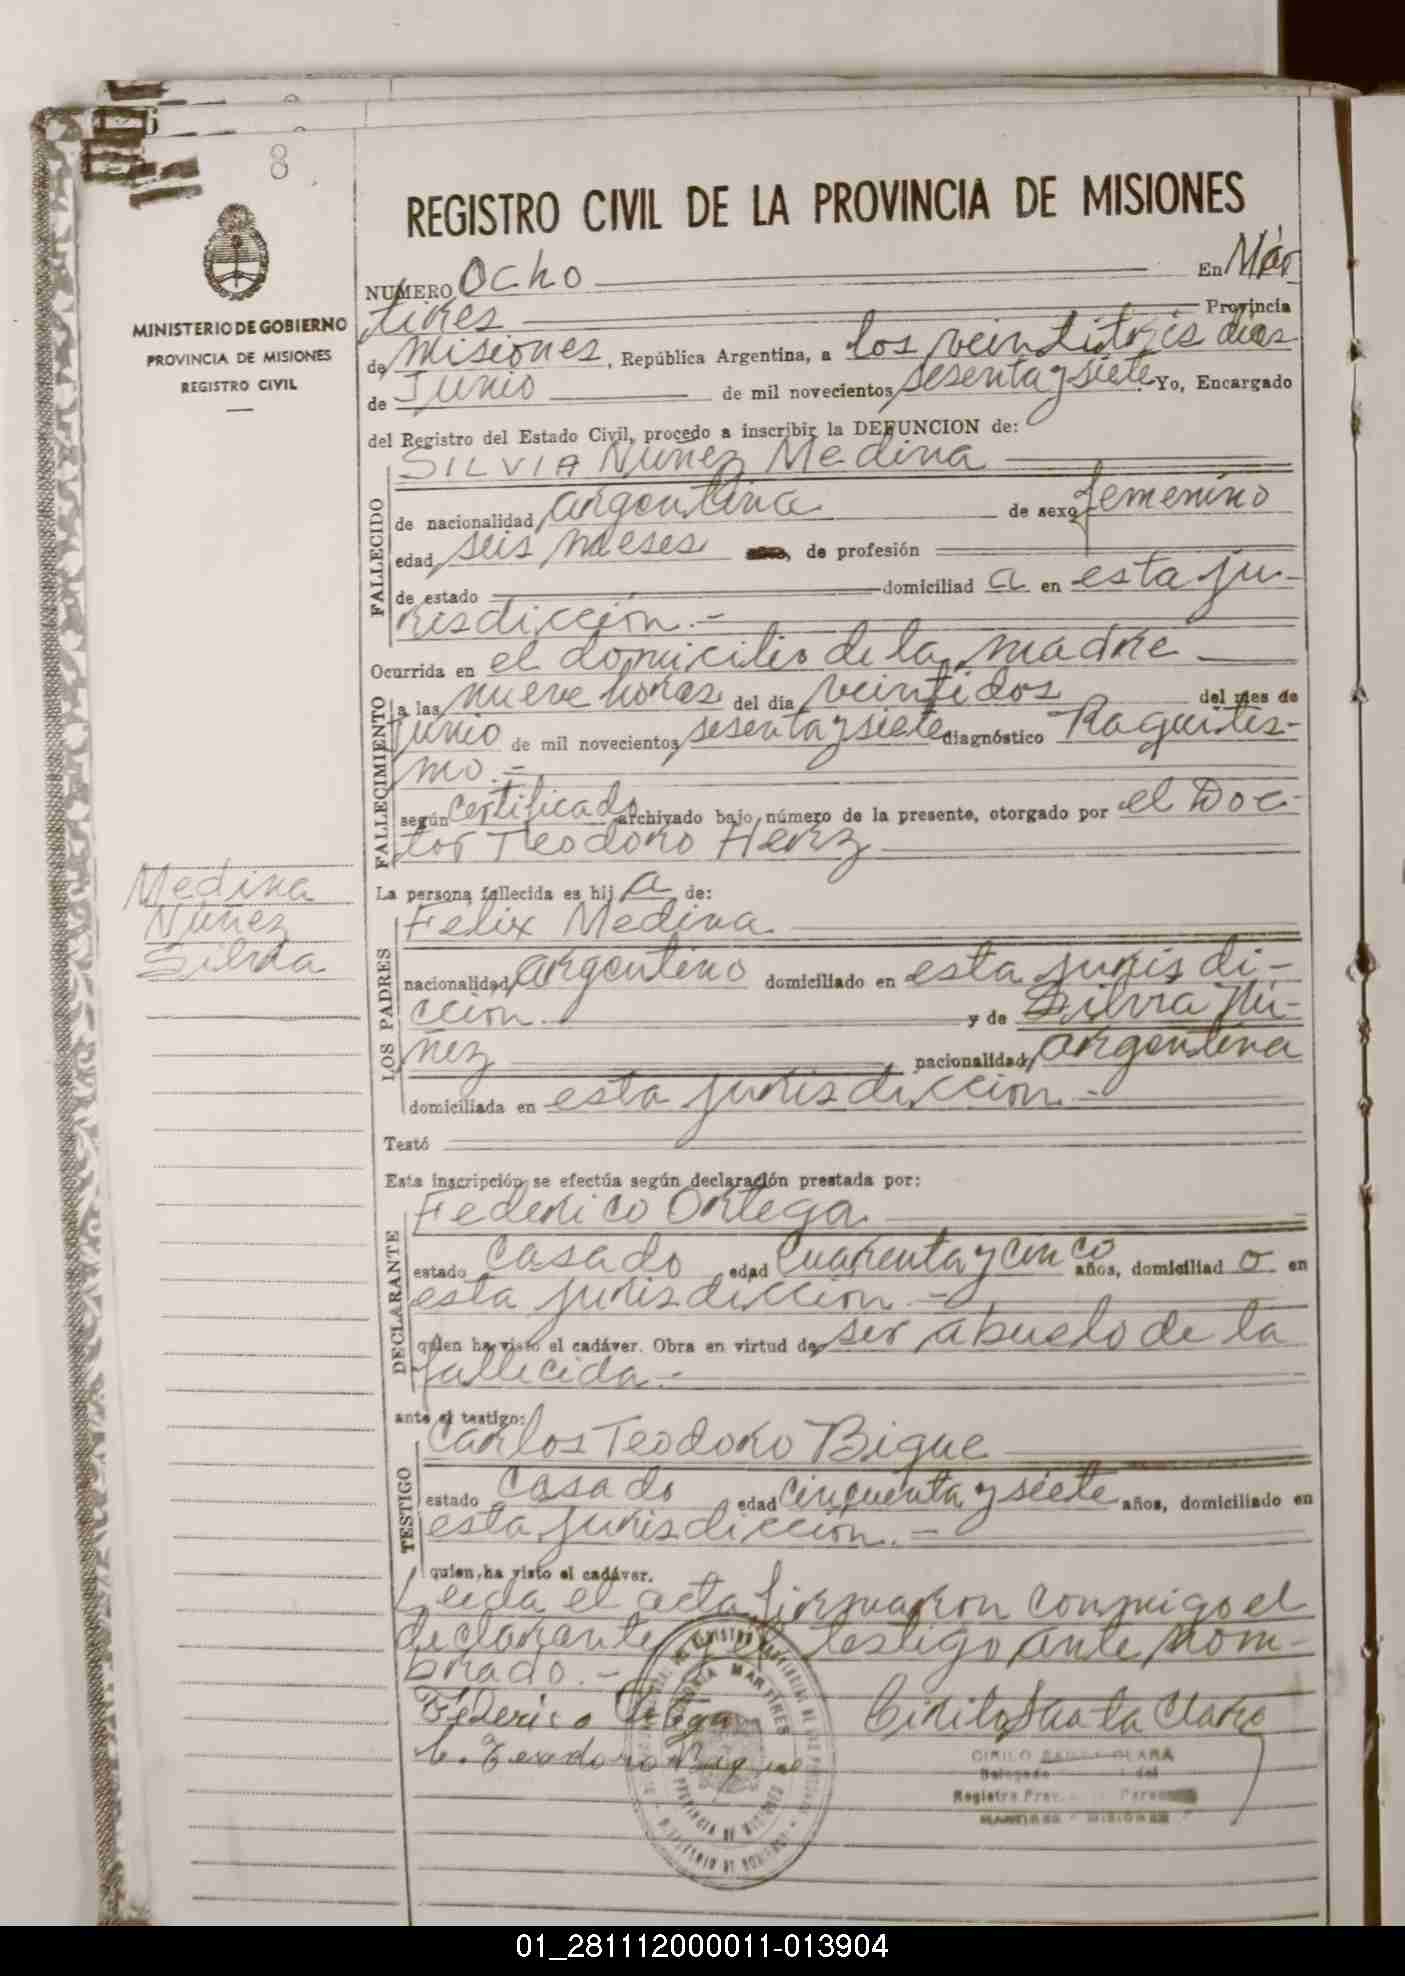 8
REGISTRO CIVIL DE LA PROVINCIA DE MISIONES
MINISTERIO DE GOBIERNO
PROVINCIA DE MISIONES
REGISTRO CIVIL
NUMERO Ocho En Már
tires Provincia
de Misiones, República Argentina, a los veintitrés días
de Junio de mil novecientos sesenta y siete Yo, Encargado
del Registro del Estado Civil, procedo a inscribir la DEFUNCION de:
SILVIA Nuñez Medina
FALLECIDO
de nacionalidad argentina de sexo femenino
edad seis meses, de profesión
de estado domiciliad a en esta ju-
risdicción.-
Ocurrida en el domicilio de la madre
FALLECIMIENTO
a las nueve horas del dia veintidos del mes de
Junio de mil novecientos sesenta y siete diagnóstico Raquitis-
mo.-
según certificado archivado bajo número de la presente, otorgado por el Doc-
tor Teodoro Henz
Medina
Núñez
Silvia
La persona fallecida es hij a de:
LOS PADRES
Felix Medina
nacionalidad argentino domiciliado en esta jurisdi-
cción. y de Silvia Nú-
ñez nacionalidad argentina
domiciliada en esta jurisdicción.-
Testó
Esta inscripción se efectúa según declaración prestada por:
DECLARANTE
Federico Ortega
estado casado edad cuarenta y cinco años, domiciliad o en
esta jurisdicción.-
quien ha visto el cadáver. Obra en virtud de ser abuelo de la
fallecida.-
ante el testigo:
TESTIGO
Carlos Teodoro Bique
estado casado edad cinquenta y siete años, domiciliado en
esta jurisdicción.-
quien ha visto el cadáver.
Leida el acta firmaron conmigo el
declarante y el testigo ante nom-
brado.-
Federico Ortega
C. Teodoro Bique
Cirilo Santa Clara
CIRILO SANTA CLARA
Delegado del
Registro Prov.
MARTIRES - MISIONES
MARTIRES
PROVINCIA DE MISIONES
01_281112000011-013904